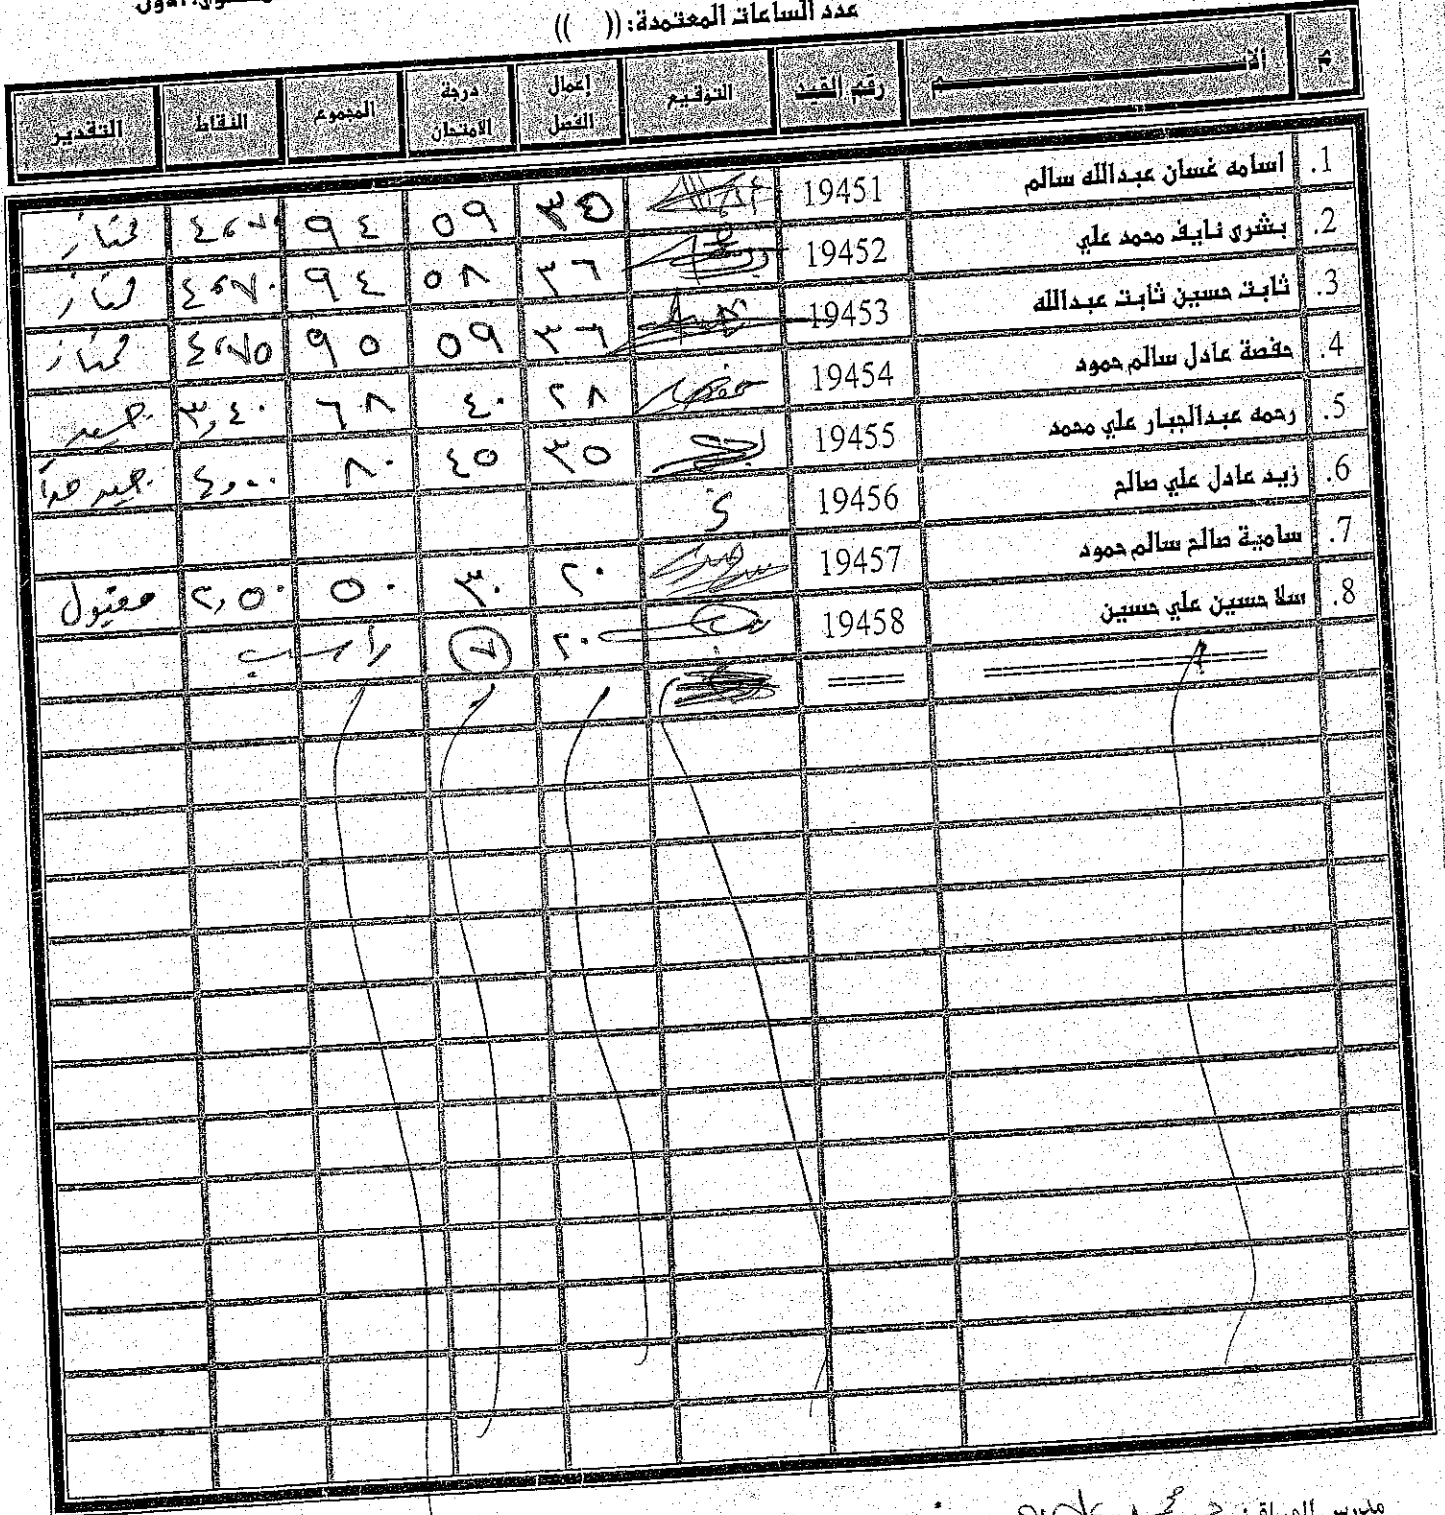 عدد الساعات المعتمدة: (( ))
م الاســـــــــم رقم القيد التوقيع إعمال الفصل درجة الامتحان المجموع النقاط التقدير
1. اسامه غسان عبدالله سالم 19451 ٣٥ ٥٩ ٩٤ ٤،٧٠ ممتاز
2. بشرى نايف محمد علي 19452 ٣٦ ٥٨ ٩٤ ٤،٧٠ ممتاز
3. ثابت حسين ثابت عبدالله 19453 ٣٦ ٥٩ ٩٥ ٤،٧٥ ممتاز
4. حفصة عادل سالم حمود 19454 حفصه ٢٨ ٤٠ ٦٨ ٣,٤٠ جيد
5. رحمه عبدالجبار علي محمد 19455 ٣٥ ٤٥ ٨٠ ٤,٠٠ جيد جداً
6. زيد عادل علي صالح 19456 غ
7. سامية صالح سالم حمود 19457 ٢٠ ٣٠ ٥٠ ٢,٥٠ مقبول
8. سلا حسين علي حسين 19458 ٢٠ ٧ راسب
===== =====
مدرس المساق: